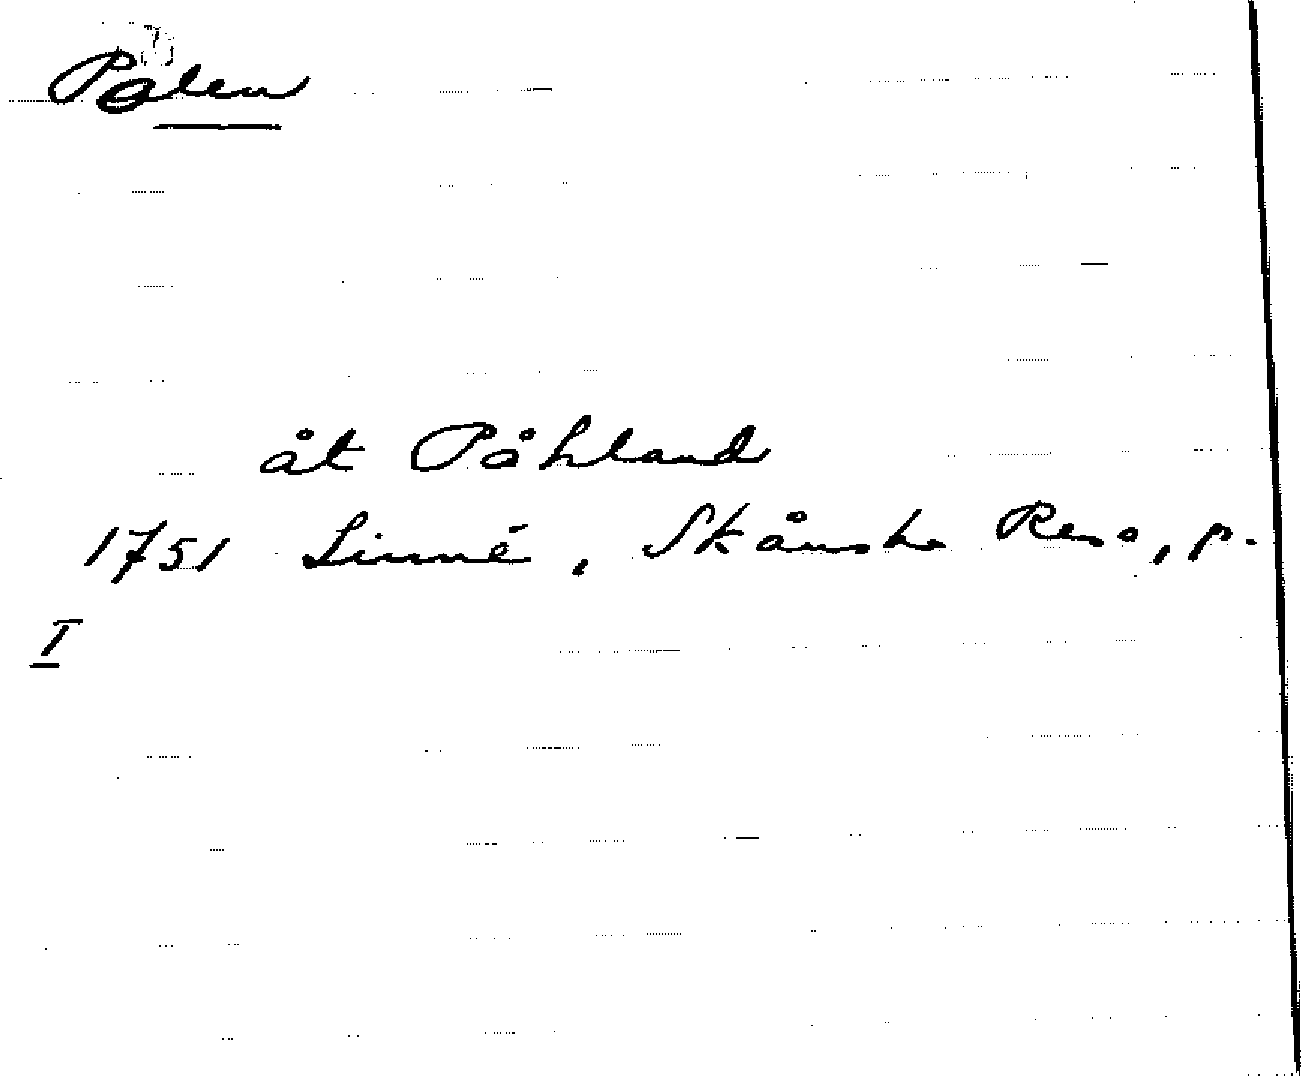 Polen
åt Påhland
1751 Linné, Skånska Resa, p.
I